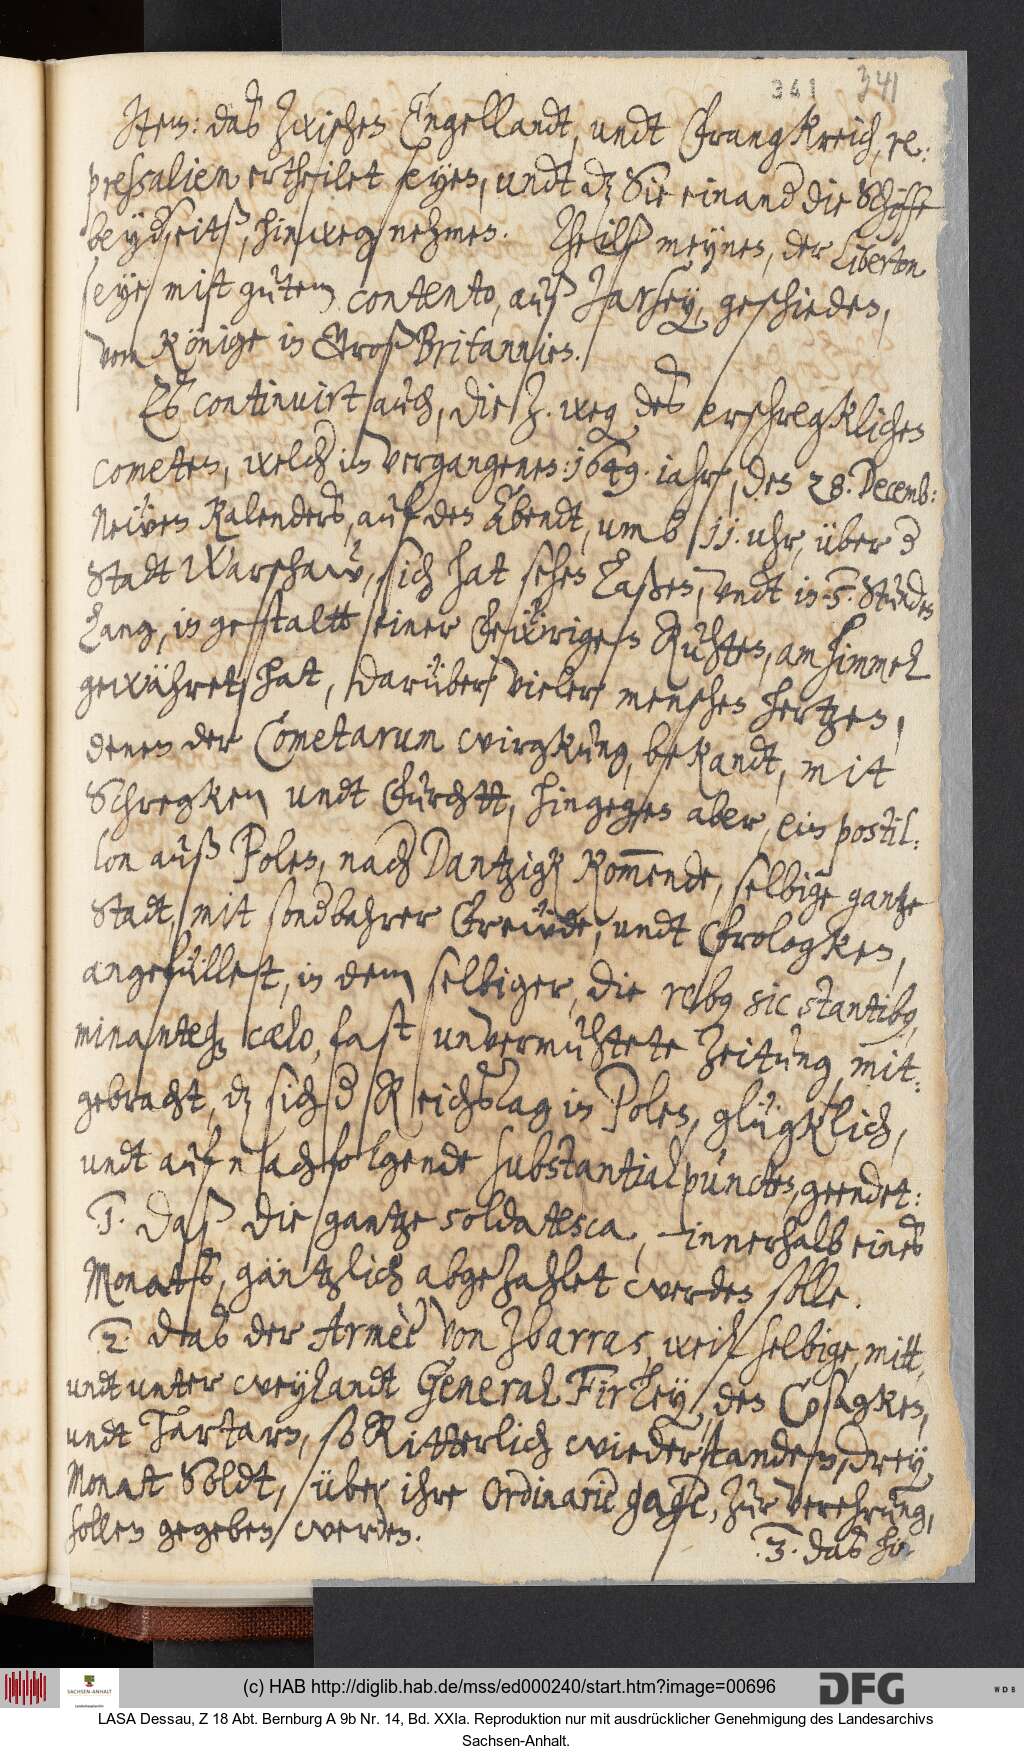 341 341
Item: daß zwischen Engellandt, undt Frangkreich, re-
pressalien ertheilet seyen, undt dz Sie einand die Schiffe
beyderseitß, hinweg nehmen. Theilß meynen, der Liberton
seye mitt gutem contento, auß Jarsey, geschieden,
vom Könige in GroßBritannien.
Es continuirt auch, die h. weg des erschregklichen
cometen, welch in vergangenen: 1649. iahr, den 28. Decemb:
Neuen Kalenders, auf den Abendt, umb 11. uhr, über d
Stadt Warschaw, sich hat sehen laßen, undt in 5. Stunden
lang, in gestaltt einer feẅrigen Ruhten, am himmel
gewähret hat, darüber vieler menschen hertzen,
denen der Cometarum wirgkung, bekandt, mit
Schregken undt Furchtt, hingegen aber, ein postil-
lon auß Polen, nach Dantzigk kom̅ende, selbige gantze
Stadt, mit sondbahrer Freẅde, undt Frologken,
angefüllet, in dem selbiger, die reb9 sic stantib9,
minanteq3 cælo, fast unvermuhtete Zeitung, mit-
gebracht, dz sich d Reichstag in Polen, glügklich,
undt auf nachfolgende substantialpuncten, geendet:
1. Daß die gantze soldatesca, innerhalb eines
Monats, gäntzlich abgezahlet werden solle.
2. das der Armèe von Zbarras, weil selbige, mitt,
undt unter weylandt General Firley, den Cosagken,
undt Tartarn, so Ritterlich wiederstanden, drey
Monat Soldt, über ihre Ordinarie gage, zur verehrung,
sollen gegeben werden.
3. das hin
(c) HAB http://diglib.hab.de/mss/ed000240/start.htm?image=00696
SACHSEN-ANHALT
DFG
WDB
LASA Dessau, Z 18 Abt. Bernburg A 9b Nr. 14, Bd. XXIa. Reproduktion nur mit ausdrücklicher Genehmigung des Landesarchivs
Sachsen-Anhalt.